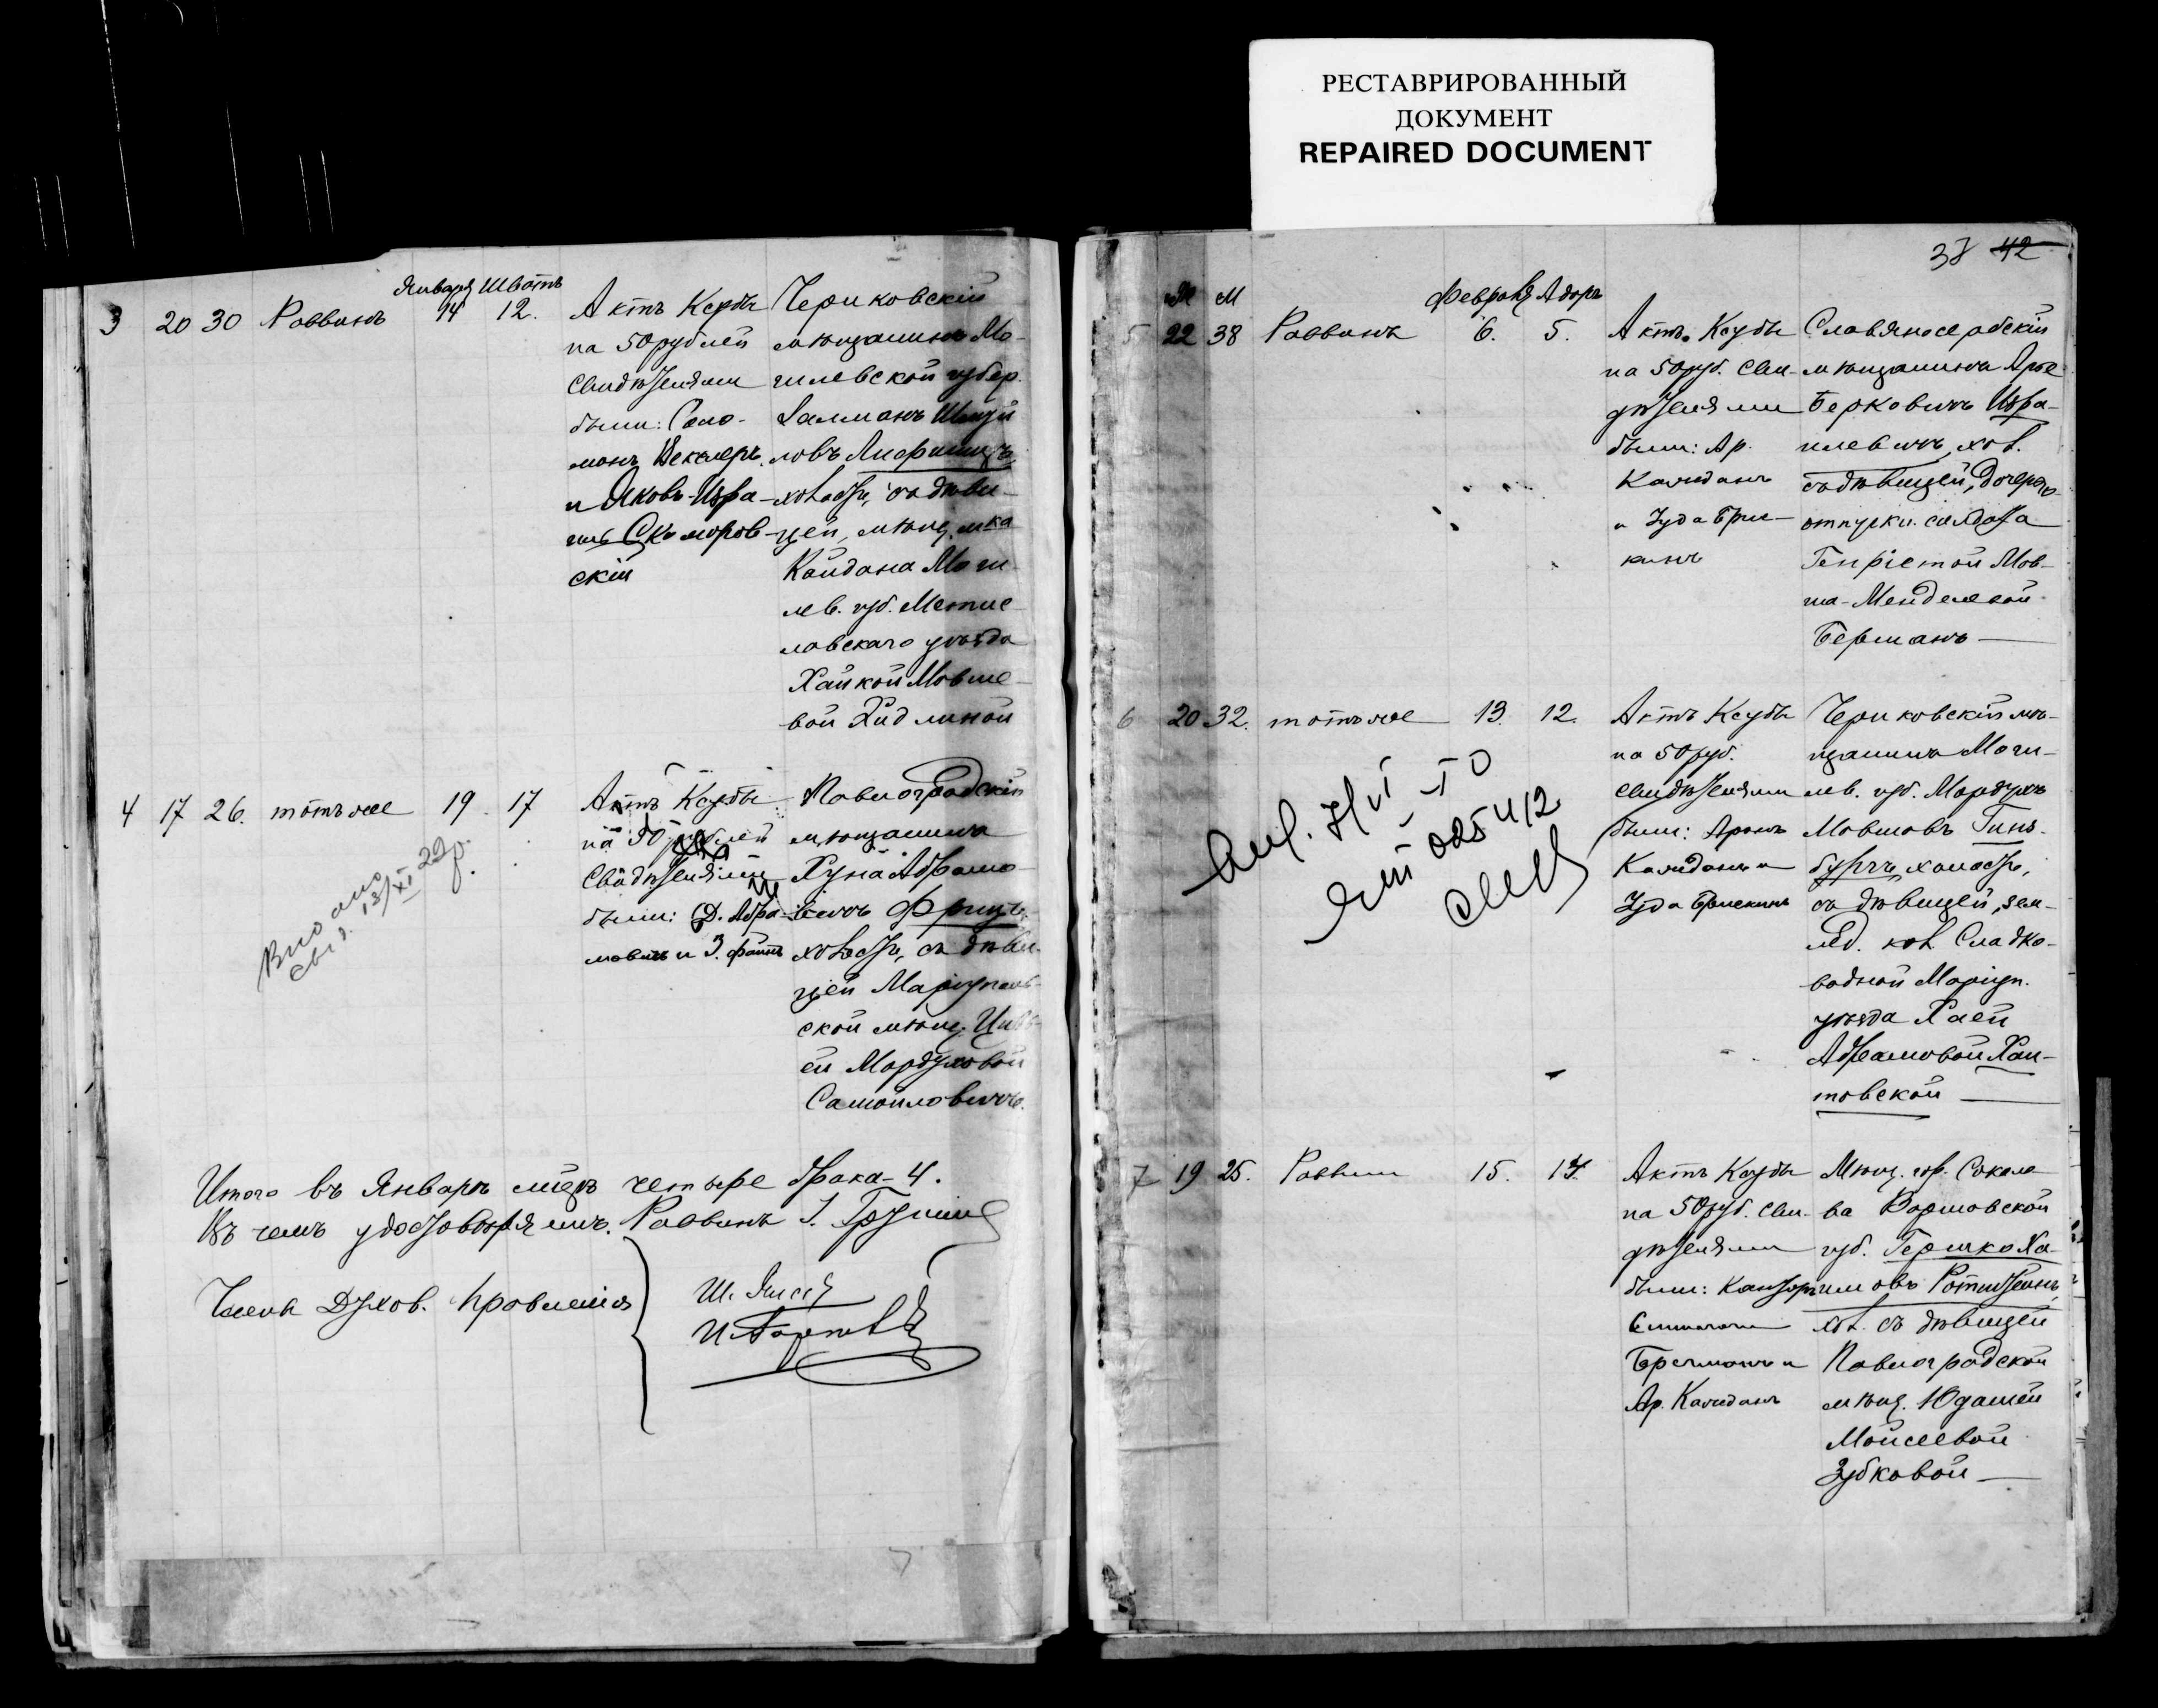 РЕСТАВРИРОВАННЫЙ
ДОКУМЕНТ
REPAIRED DOCUMENT
Января Шватъ
3 20 30 Раввинъ 14 12.
Актъ Ксубы
на 50 рублей
Свидѣтелями
были: Соло-
монъ Векслеръ
и Яковъ-Изра-
иль Скоморов-
скій
Чериковскій
мѣщанинъ Мо-
гилевской губер.
Залманъ
холостъ, съ дѣви-
цей, мѣщ. м-ка
Кайдана Моги-
лев. губ. Мстис-
лавскаго уѣзда
Хайкой Мовше-
вой Хидлиной
4 17 26. тотъ же 19. 17
Актъ Ксубы
на 50 рублей
Свидѣтелями
были: Д. Абра-
мовичъ и З.
Павлоградскій
мѣщанинъ
Хуна Абрамо-
вичъ Фрицъ,
холостъ, съ дѣви-
цей Маріуполь-
ской мѣщ. Цивь-
ей Мордуховой
Самойловичъ.
Выдано
свид. 13/XI 22 г.
Итого въ Январѣ мѣс. четыре брака - 4.
Въ чемъ удостовѣряемъ. Раввинъ
Члены Духов. Правленія
37 42
М М Февраля Адаръ
5 22 38 Раввинъ 6. 5.
Актъ Ксубы
на 50 руб. Сви-
дѣтелями
были: Ар.
Каждань
и Іуда Брис-
кинъ
Славяносербскій
мѣщанинъ Арье
Берковичъ Изра-
илевичъ, хол.
съ дѣвицей, дочерью
отпускн. солдата
Генріетой Мов-
ша-Менделевой
Берманъ
6 20 32. тотъ же 13. 12.
Актъ Ксубы
на 50 руб.
Свидѣтелями
были: Аронъ
Каждань и
Іуда Брискинъ
Чериковскій мѣ-
щанинъ Моги-
лев. губ. Мордухъ
Мовшовъ Гинз-
бургъ, холостъ,
съ дѣвицей, зем-
лед. кол. Сладко-
водной Маріуп.
уѣзда Хаей
Абрамовой Хан-
товской
7 19 25. Раввинъ 15. 14.
Актъ Ксубы
на 50 руб. Сви-
дѣтелями
были: Канторъ
Берлманъ и
Ар. Каждань
Мѣщ. гор. Соколо-
ва Варшавской
губ. Гершко Ха-
имовъ Ротштейнъ,
хол. съ дѣвицей
Павлоградской
мѣщ. Юдашей
Мойсеевой
Зубковой